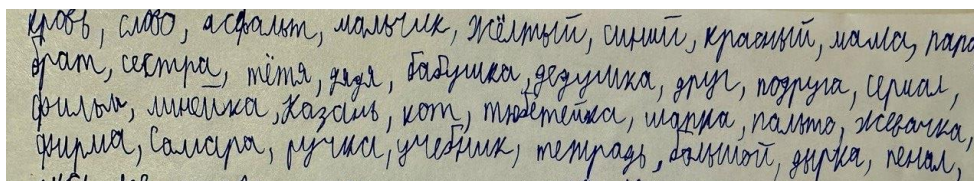 кровь, слово, асфальт, мальчик, жёлтый, синий, красный, мама,
брат, сестра, тётя, дядя, бабушка, дедушка, друг, подруга, сериал,
фильм, линейка, Казань, кот, тюбетейка, шапка, пальто, жевачка,
фирма, Самара, ручка, учебник, тетрадь, большой, дырка, пенал,